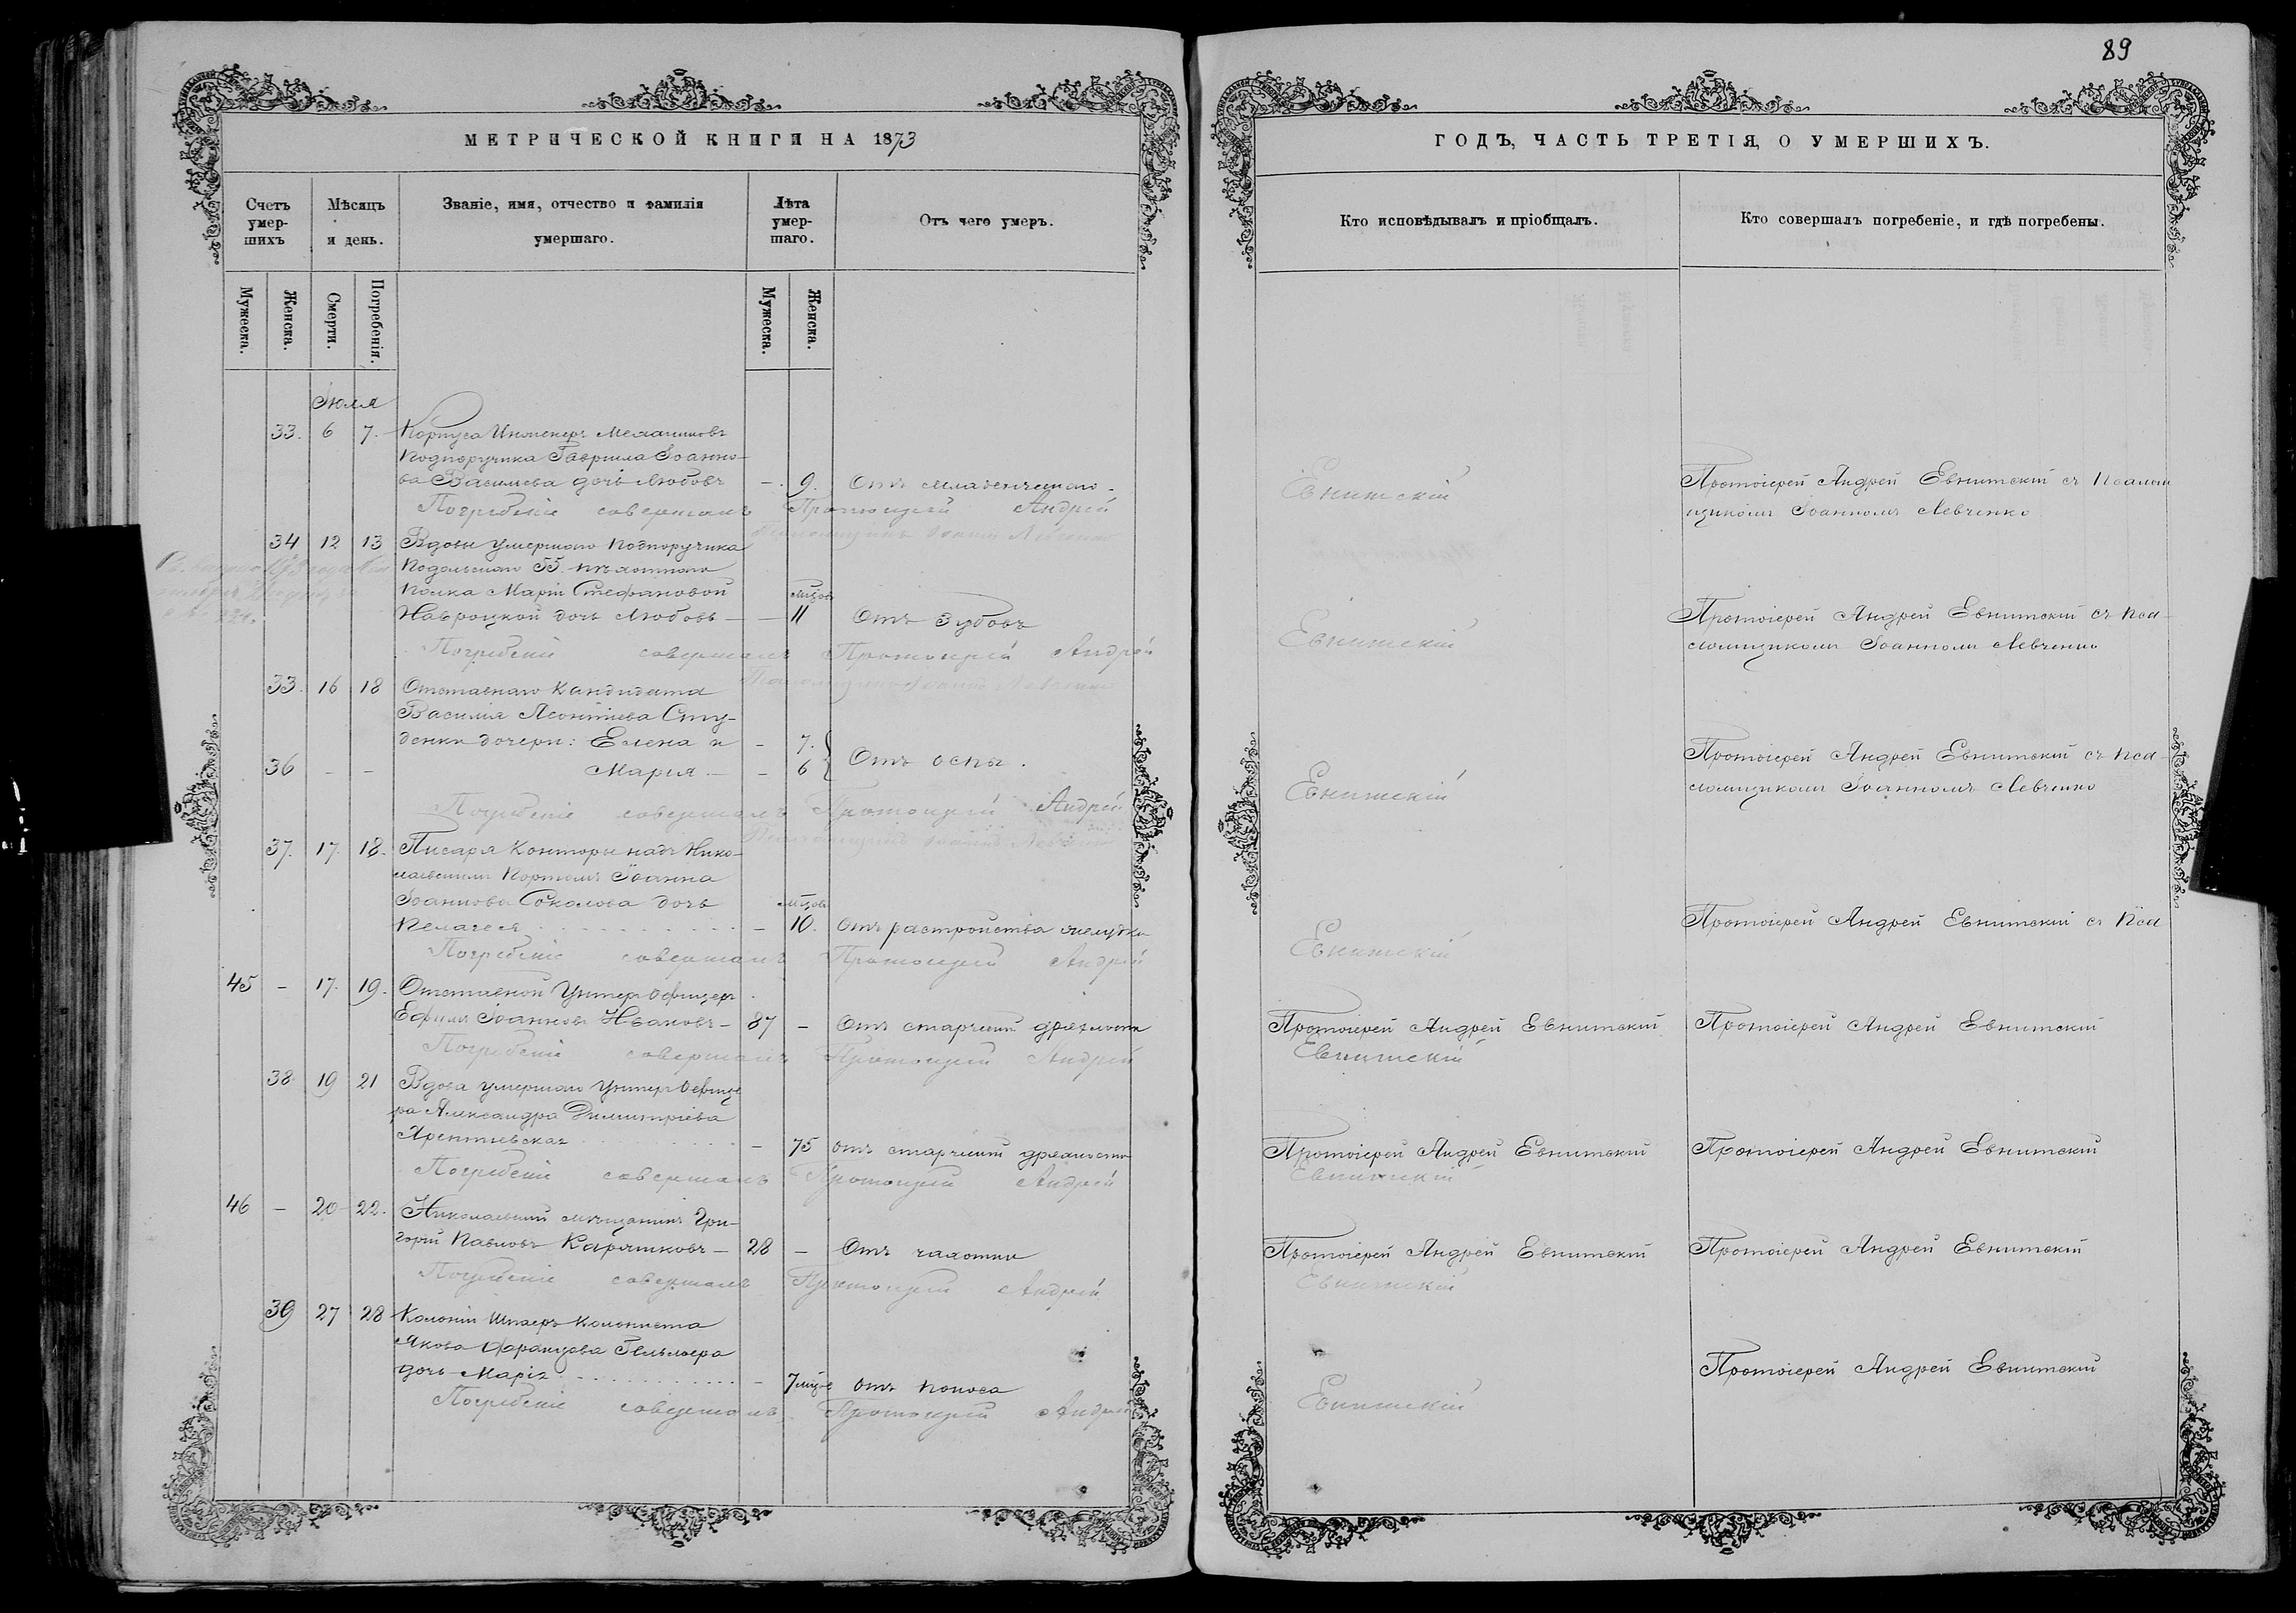 89
МЕТРИЧЕСКОЙ КНИГИ НА 1873
ГОДЪ, ЧАСТЬ ТРЕТІЯ, О УМЕРШИХЪ.
Счетъ умершихъ
Мѣсяцъ и день.
Званіе, имя, отчество и фамилія умершаго.
Лѣта умершаго.
Отъ чего умеръ.
Кто исповѣдывалъ и пріобщалъ.
Кто совершалъ погребеніе, и гдѣ погребены.
Мужеска. Женска. Смерти. Погребенія. Мужеска. Женска.
Іюля
33. 6 7. Корпуса Инженеръ Механиковъ
Подпоручика Гавріила Іоанно-
ва Васильева дочь Любовь — 9. Отъ младенческаго Протоіерей Андрей Евнитскій съ Псалом
щикомъ Іоанномъ Левченко
Погребеніе совершалъ Протоіерей Андрей Евнитскій
Псаломщикъ Іоаннъ Левченко
34 12 13 Вдовы умершаго Подпоручика
Подольскаго 55. пѣхотнаго
полка Маріи Стефановой мѣсцов
Навроцкой дочь Любовь — — 11 Отъ зубовъ Протоіерей Андрей Евнитскій съ Пса-
ломщикомъ Іоанномъ Левченко
Погребеніе совершалъ Протоіерей Андрей Евнитскій
33. 16 18 Отставнаго Кандидата
Василія Леонтіева Сту-
денки дочери: Елена и — 7.
36 — — Марія — — 6 Отъ оспы. Протоіерей Андрей Евнитскій съ Пса-
ломщикомъ Іоанномъ Левченко
Погребеніе совершалъ Протоіерей Андрей Евнитскій
37. 17. 18. Писаря Конторы надъ Нико-
лаевскимъ Портомъ Іоанна
Іоаннова Соколова дочь
Пелагея — 10. отъ растройства желудка Протоіерей Андрей Евнитскій съ Пса
Погребеніе совершалъ Протоіерей Андрей Евнитскій
45 — 17. 19. Отставной Унтеръ Офицеръ
Ефимъ Іоанновъ Ивановъ — 87 — Отъ старческой дряхлости Протоіерей Андрей Евнитскій Протоіерей Андрей Евнитскій
Погребеніе совершалъ Протоіерей Андрей Евнитскій
38. 19 21 Вдова умершаго Унтеръ Офице
ра Александра Димитріева
— 75 отъ старческой дряхлости Протоіерей Андрей Евнитскій Протоіерей Андрей Евнитскій
Погребеніе совершалъ Протоіерей Андрей Евнитскій
46 — 20 22. Николаевскій мѣщанинъ Гри-
горій Павловъ Карячковъ — 28 — Отъ чахотки Протоіерей Андрей Евнитскій Протоіерей Андрей Евнитскій
Погребеніе совершалъ Протоіерей Андрей Евнитскій
39 27 28 Колоніи Шпаеръ Колониста
Якова Францова
дочь Марія — 7 мѣсцов отъ поноса Протоіерей Андрей Евнитскій
Погребеніе совершалъ Протоіерей Андрей Евнитскій